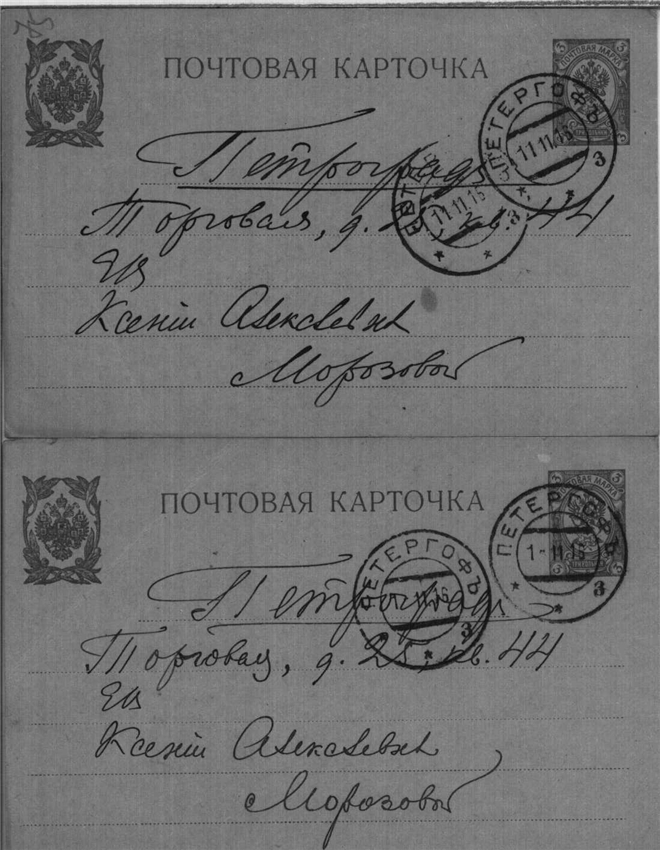 ПОЧТОВАЯ КАРТОЧКА
3 3
ПОЧТОВАЯ МАРКА
ПЕТЕРГОФЪ
11.11.16
3
11.11.16
3
Петроград
Торговая, д. кв. 44
ЕВ
Ксеніи Алексѣевнѣ
Морозовой
ПОЧТОВАЯ КАРТОЧКА
3 3
ПОЧТОВАЯ МАРКА
ПЕТЕРГОФЪ
1-11.16
3
ПЕТЕРГОФЪ
11.16
3
Петроград
Торговая, д. 25, кв. 44
ЕВ
Ксеніи Алексѣевнѣ
Морозовой